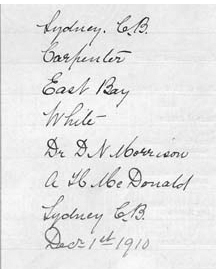 Sydney. C.B.
Carpenter
East Bay
White
Dr D N Morrison
A H McDonald
Sydney C.B.
Decr 1st 1910